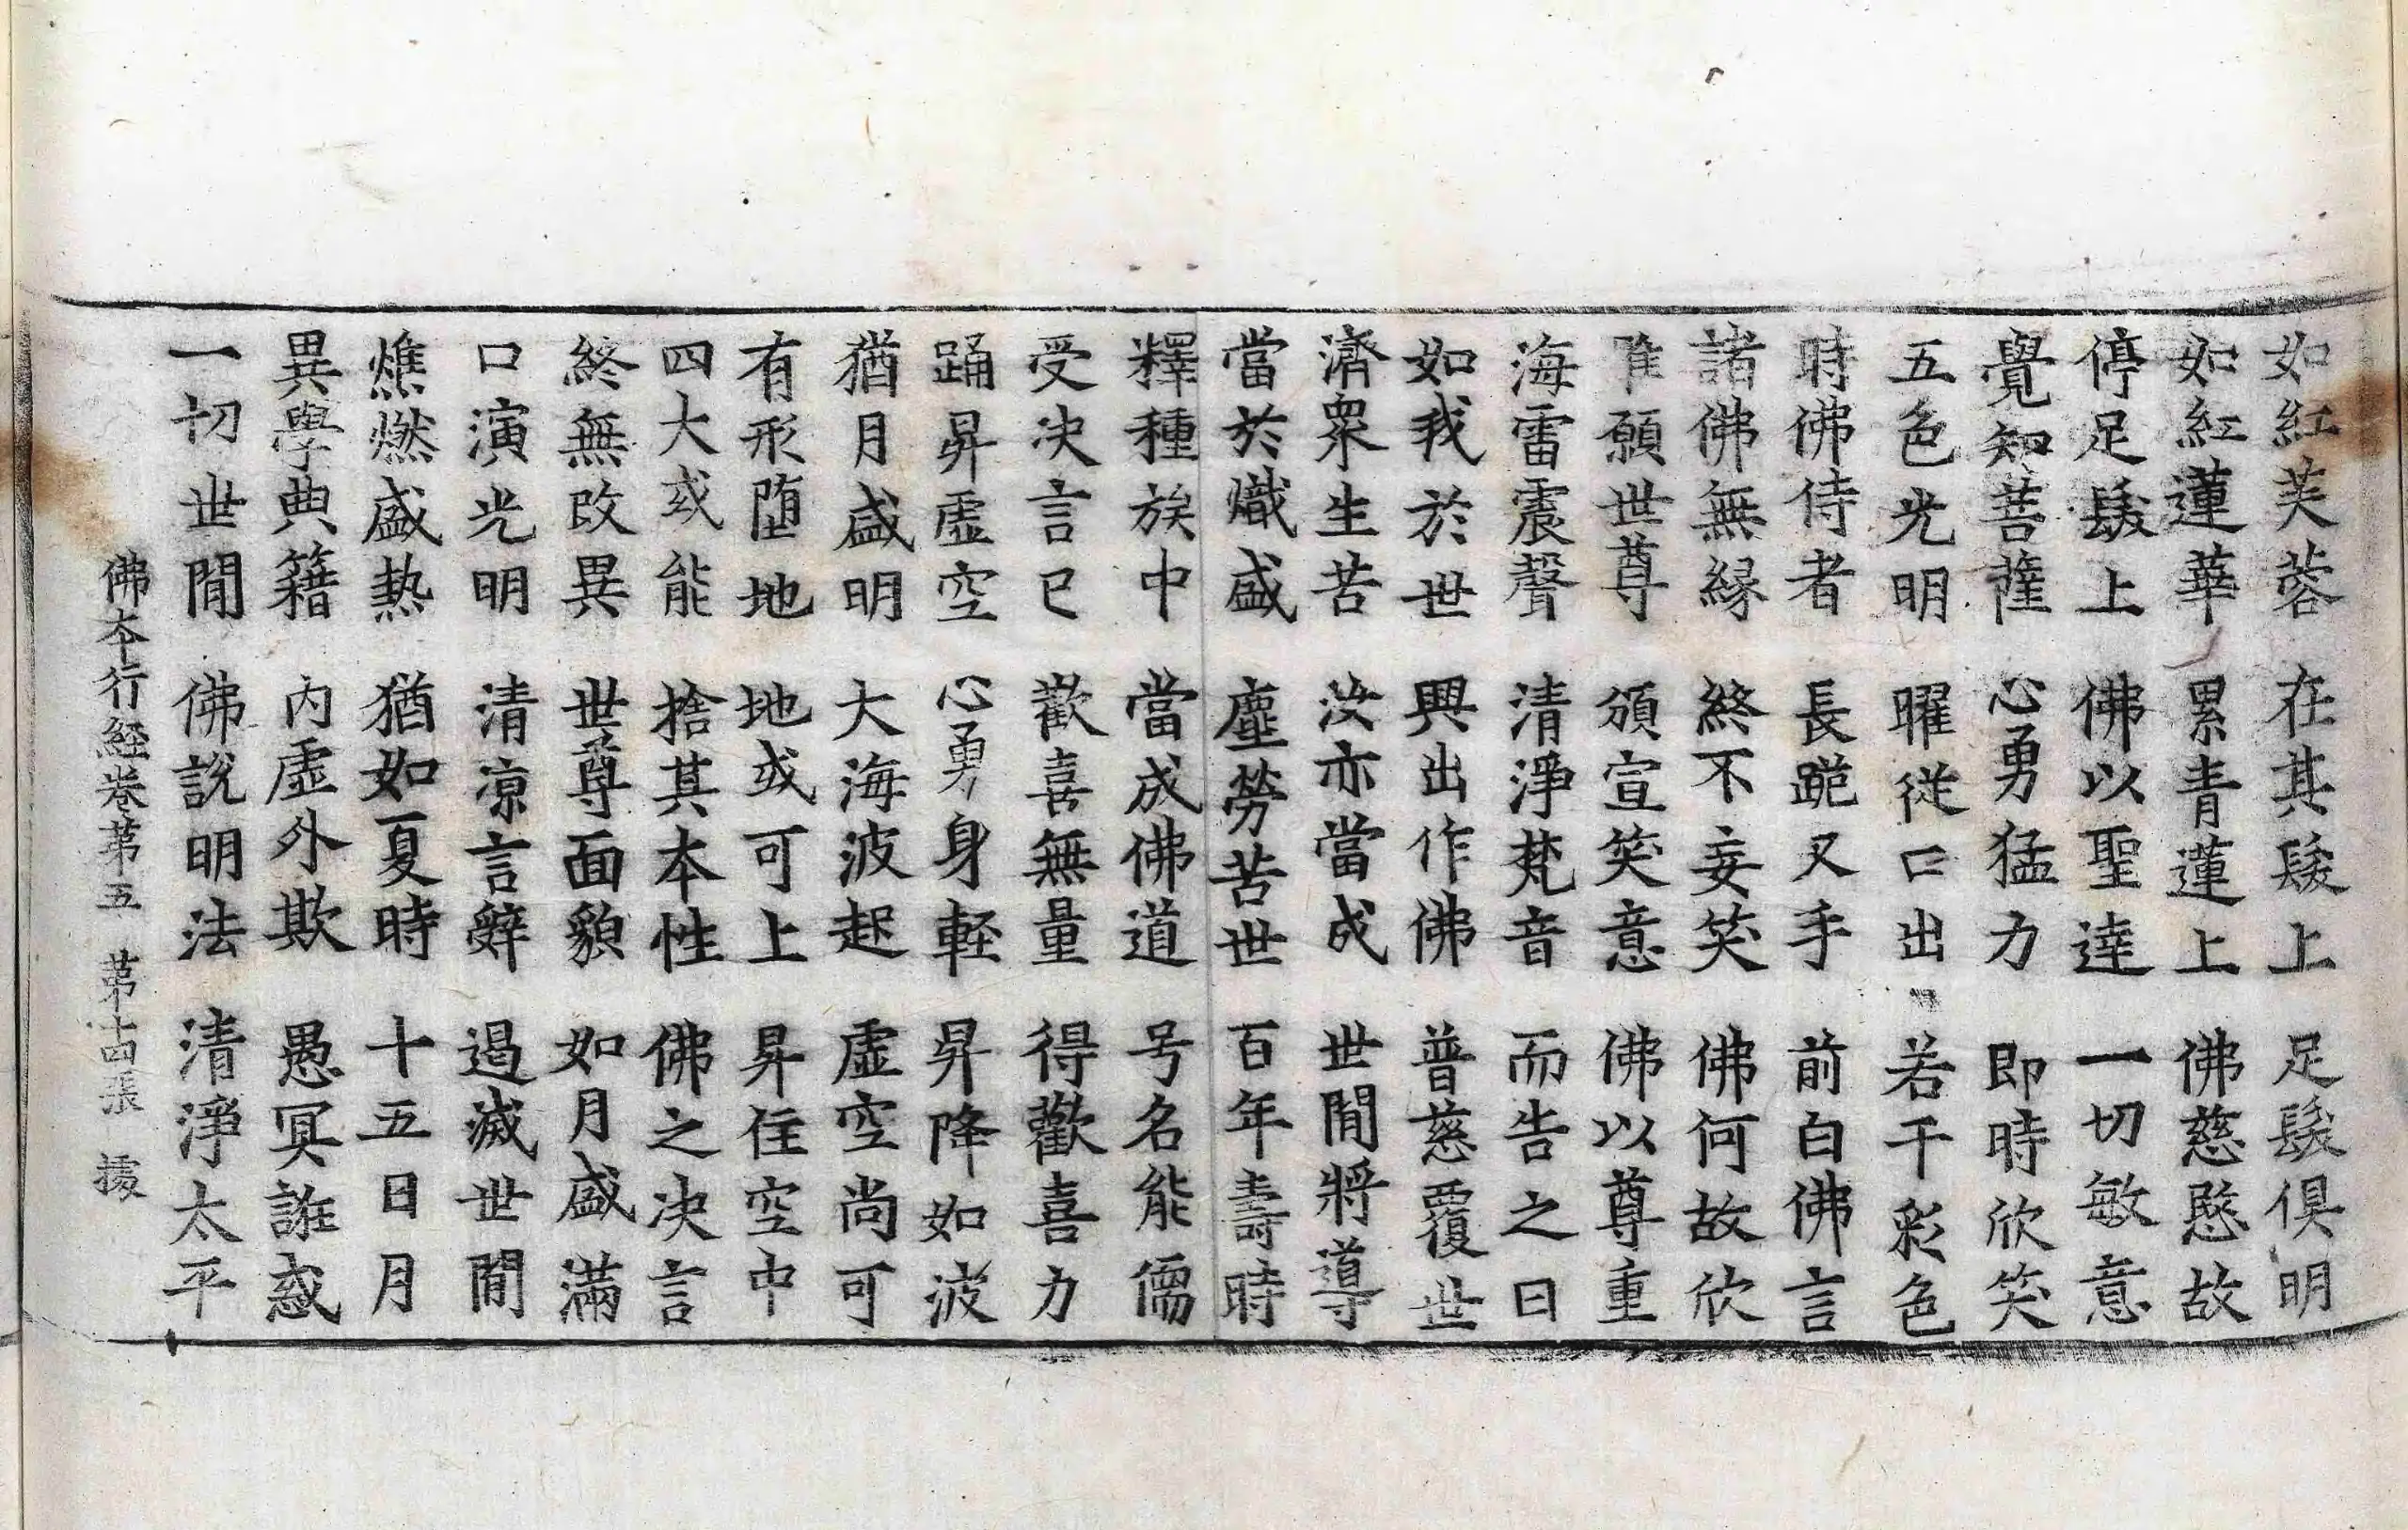 如紅芙蓉 在其髮上 足髮俱明
如紅蓮華 累青蓮上 佛慈愍故
停足髮上 佛以聖達 一切敏意
覺知菩薩 心勇猛力 即時欣笑
五色光明 曜從口出 若干彩色
時佛侍者 長跪叉手 前白佛言
諸佛無緣 終不妄笑 佛何故欣
唯願世尊 頒宣笑意 佛以尊重
海雷震聲 清淨梵音 而告之曰
如我於世 興出作佛 普慈覆世
濟衆生苦 汝亦當成 世閒將導
當於熾盛 塵勞苦世 百年壽時
釋種族中 當成佛道 号名能儒
受决言已 歡喜無量 得歡喜力
踊昇虛空 心勇身輕 昇降如波
猶月盛明 大海波起 虛空尚可
有形墮地 地或可上 昇住空中
四大或能 捨其本性 佛之决言
終無改異 世尊面貌 如月盛滿
口演光明 清凉言辭 遏滅世閒
燋燃盛熱 猶如夏時 十五日月
異學典籍 內虛外欺 愚冥誑惑
一切世閒 佛說明法 清淨太平
佛本行經卷第五 第十四張